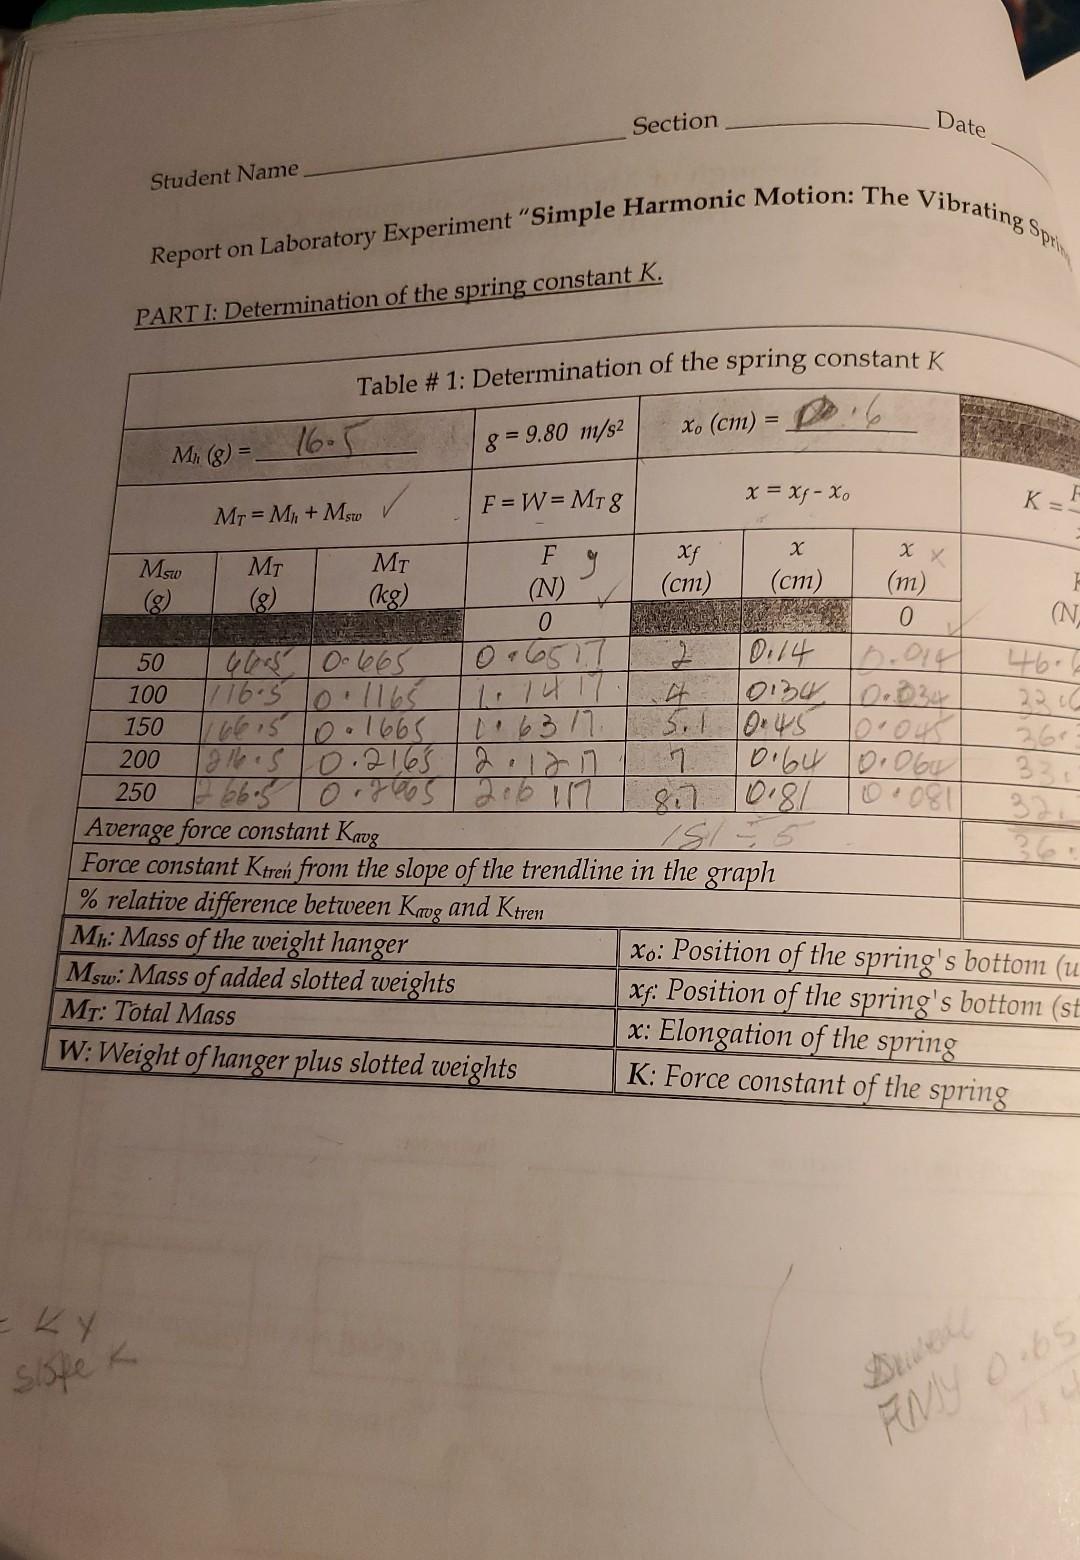 Student Name Section Date
Report on Laboratory Experiment "Simple Harmonic Motion: The Vibrating Sprin
PART I: Determination of the spring constant K.
Table # 1: Determination of the spring constant K
Mh (g) = 16.5 g = 9.80 m/s² xo (cm) = 0.6
MT = Mh + Msw ✓ F = W = MT g x = xf - xo K = F
Msw (g) MT (g) MT (kg) F (N) y ✓ xf (cm) x (cm) x (m) x (N/
0 0 ✓
50 66.5 0.665 0.6517 2 0.14 0.014 46.
100 116.5 0.1165 1.1417 4 0.34 0.034 33.
150 166.5 0.1665 1.6317 5.1 0.45 0.045 36.
200 216.5 0.2165 2.1217 7 0.64 0.064 33.
250 266.5 0.2665 2.6117 8.7 0.81 0.081 32.
Average force constant Kavg 181 ÷ 5 36.
Force constant Ktren from the slope of the trendline in the graph
% relative difference between Kavg and Ktren
Mh: Mass of the weight hanger xo: Position of the spring's bottom (u
Msw: Mass of added slotted weights xf: Position of the spring's bottom (st
MT: Total Mass x: Elongation of the spring
W: Weight of hanger plus slotted weights K: Force constant of the spring
= K y
slope K
0.65